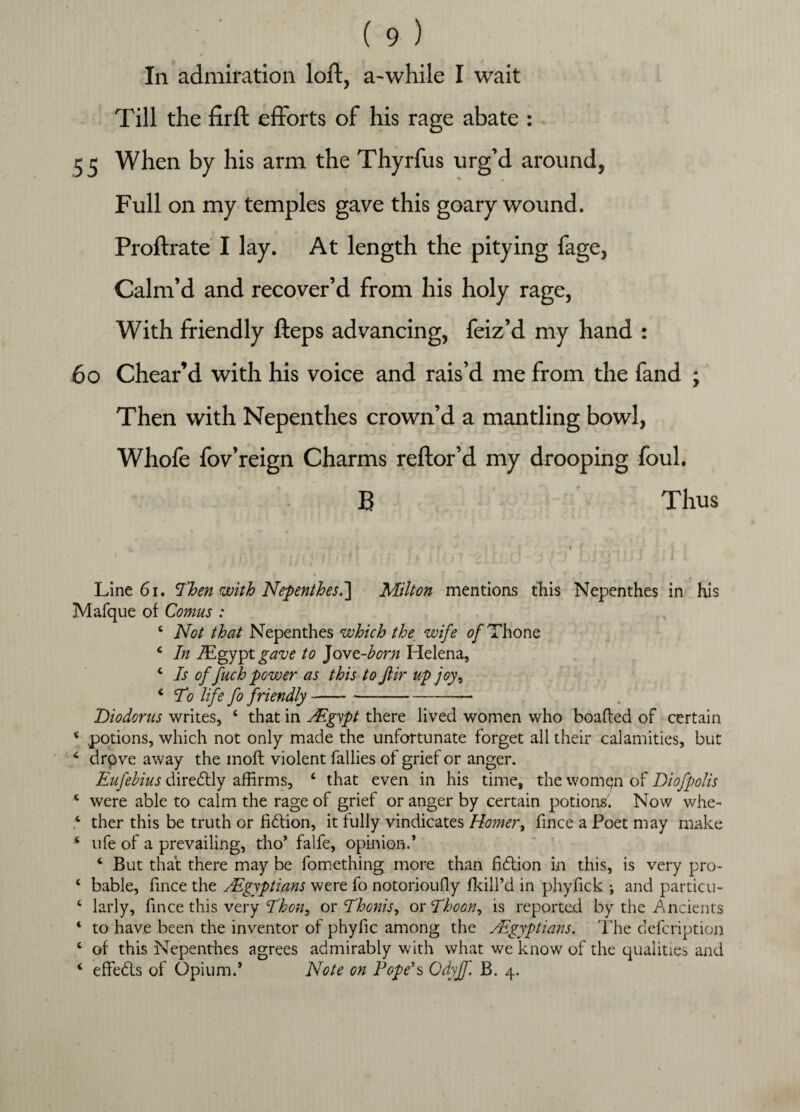 ( 9 )
In admiration loſt, a-while I wait
Till the firſt efforts of his rage abate :
55 When by his arm the Thyrſus urg’d around,
Full on my temples gave this goary wound.
Proſtrate I lay. At length the pitying ſage,
Calm’d and recover’d from his holy rage,
With friendly ſteps advancing, ſeiz’d my hand :
60 Chear’d with his voice and rais’d me from the ſand ;
Then with Nepenthes crown’d a mantling bowl,
Whoſe ſov’reign Charms reſtor’d my drooping ſoul.
B Thus
Line 61. Then with Nepenthes.] Milton mentions this Nepenthes in his
Maſque of Comus :
‘ Not that Nepenthes which the wife of Thone
‘ In Ægypt gave to Jove-born Helena,
‘ Is of ſuch power as this to ſtir up joy,
‘ To life ſo friendly — — —
Diodorus writes, ‘ that in Ægypt there lived women who boaſted of certain
‘ potions, which not only made the unfortunate forget all their calamities, but
‘ drove away the moſt violent ſallies of grief or anger.
Euſebius directly affirms, ‘ that even in his time, the women of Dioſpolis
‘ were able to calm the rage of grief or anger by certain potions. Now whe-
‘ ther this be truth or fiction, it fully vindicates Homer, ſince a Poet may make
‘ uſe of a prevailing, tho’ falſe, opinion.’
‘ But that there may be ſomething more than fiction in this, is very pro-
‘ bable, ſince the Ægyptians were ſo notoriouſly ſkill’d in phyſick ; and particu-
‘ larly, ſince this very Thon, or Thonis, or Thoon, is reported by the Ancients
‘ to have been the inventor of phyſic among the Ægyptians. The deſcription
‘ of this Nepenthes agrees admirably with what we know of the qualities and
‘ effects of Opium.’ Note on Pope’s Odyſſ. B. 4.